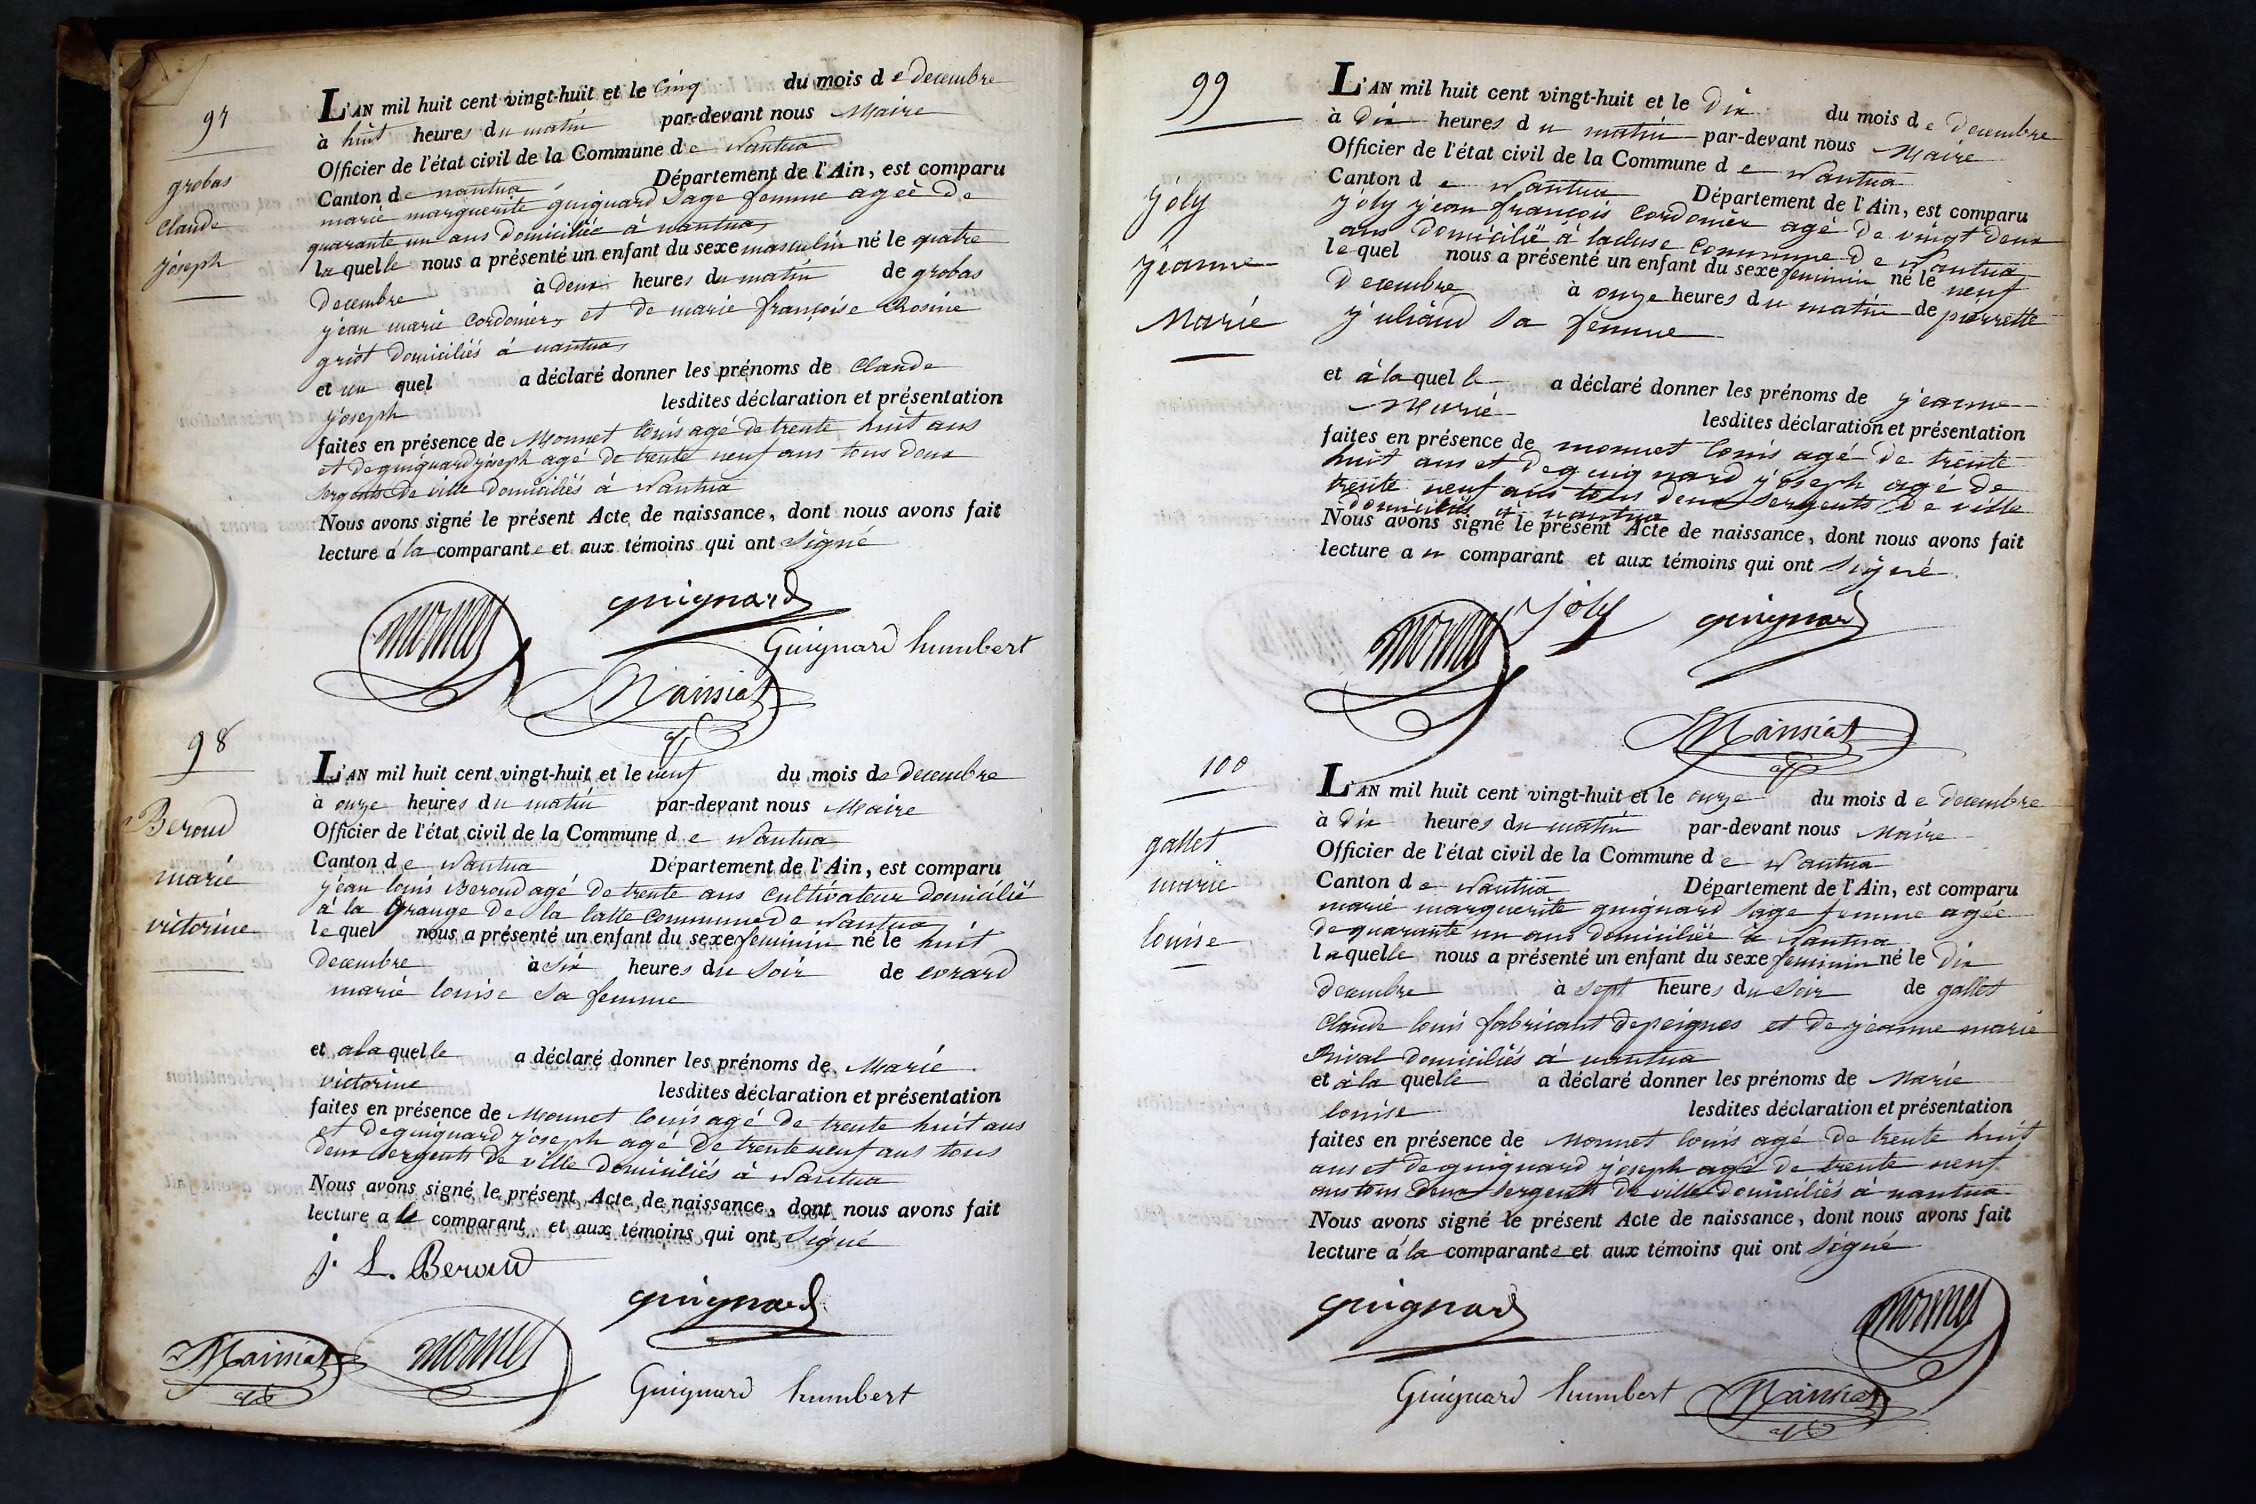 97
grobas
Claude
joseph
L'AN mil huit cent vingt-huit et le cinq du mois de decembre
à huit heures du matin par-devant nous Maire
Officier de l'état civil de la Commune de Nantua
Canton de nantua Département de l'Ain, est comparu
marie marguerite guignard sage femme agée de
quarante un ans domiciliée à nantua
laquelle nous a présenté un enfant du sexe masculin né le quatre
decembre à deux heures du matin de grobas
jean marie cordonier et de marie françoise Rosine
griot domiciliés à nantua
et au quel a déclaré donner les prénoms de Claude
joseph lesdites déclaration et présentation
faites en présence de Monnet louis agé de trente huit ans
et de guignard joseph agé de trente neuf ans tous deux
sergents de ville domiciliés à Nantua
Nous avons signé le présent Acte de naissance, dont nous avons fait
lecture à la comparante et aux témoins qui ont signé
monnet
guignard
Guignard humbert
Mainiat
98
Beroud
marie
victorine
L'AN mil huit cent vingt-huit et le neuf du mois de decembre
à onze heures du matin par-devant nous Maire
Officier de l'état civil de la Commune de Nantua
Canton de Nantua Département de l'Ain, est comparu
jean louis Beroud agé de trente ans cultivateur domicilié
à la grange de la latte commune de Nantua
lequel nous a présenté un enfant du sexe feminin né le huit
decembre à six heures du soir de evrard
marie louise sa femme
et a la quelle a déclaré donner les prénoms de Marie
victorine lesdites déclaration et présentation
faites en présence de Monnet louis agé de trente huit ans
et de guignard joseph agé de trente neuf ans tous
deux sergents de ville domiciliés à Nantua
Nous avons signé le présent Acte de naissance, dont nous avons fait
lecture a le comparant et aux témoins qui ont signé
j. L. Beroud
guignard
Mainiat
monnet
Guignard humbert
99
joly
jeanne
Marie
L'AN mil huit cent vingt-huit et le dix du mois de decembre
à dix heures du matin par-devant nous Maire
Officier de l'état civil de la Commune de Nantua
Canton de Nantua Département de l'Ain, est comparu
joly jean françois cordonier agé de vingt deux
ans domicilié à lacluse commune de Nantua
lequel nous a présenté un enfant du sexe feminin né le neuf
decembre à onze heures du matin de pierrette
juliand sa femme
et à la quelle a déclaré donner les prénoms de jeanne
Marie lesdites déclaration et présentation
faites en présence de monnet louis agé de trente
huit ans et de guignard joseph agé de
trente neuf ans tous deux sergents de ville
domiciliés à nantua
Nous avons signé le présent Acte de naissance, dont nous avons fait
lecture au comparant et aux témoins qui ont signé
monnet
joly
guignard
Mainiat
100
gallet
marie
louise
L'AN mil huit cent vingt-huit et le onze du mois de decembre
à dix heures du matin par-devant nous Maire
Officier de l'état civil de la Commune de Nantua
Canton de Nantua Département de l'Ain, est comparu
marie marguerite guignard sage femme agée
de quarante un ans domiciliée à Nantua
laquelle nous a présenté un enfant du sexe feminin né le dix
decembre à sept heures du soir de gallet
Claude louis fabricant de peignes et de jeanne marie
Rival domiciliés à nantua
et à la quelle a déclaré donner les prénoms de Marie
louise lesdites déclaration et présentation
faites en présence de Monnet louis agé de trente huit
ans et de guignard joseph agé de trente neuf
ans tous deux sergents de ville domiciliés à nantua
Nous avons signé le présent Acte de naissance, dont nous avons fait
lecture à la comparante et aux témoins qui ont signé
guignard
monnet
Guignard humbert
Mainiat